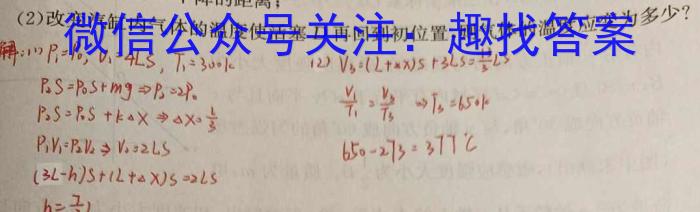 (2)改变汽缸内气体的温度使活塞Ⅰ再回到初位置,则气体的温度应变为多少?
微信公众号关注:趣找答案
解:(1) P₁=P₀, V₁=4LS, T₁=300K
P₂S=P₀S+mg⇒P₂=2P₀
P₂S=P₀S+kΔX⇒ΔX=L/3
P₁V₁=P₂V₂⇒V₂=2LS
(3L-h)S+(L+ΔX)S=2LS
h=7/
(2) V₃=(L+ΔX)S+3LS=13/3LS
V₁/T₁=V₃/T₃ ⇒T₃=650K
650-273=377℃